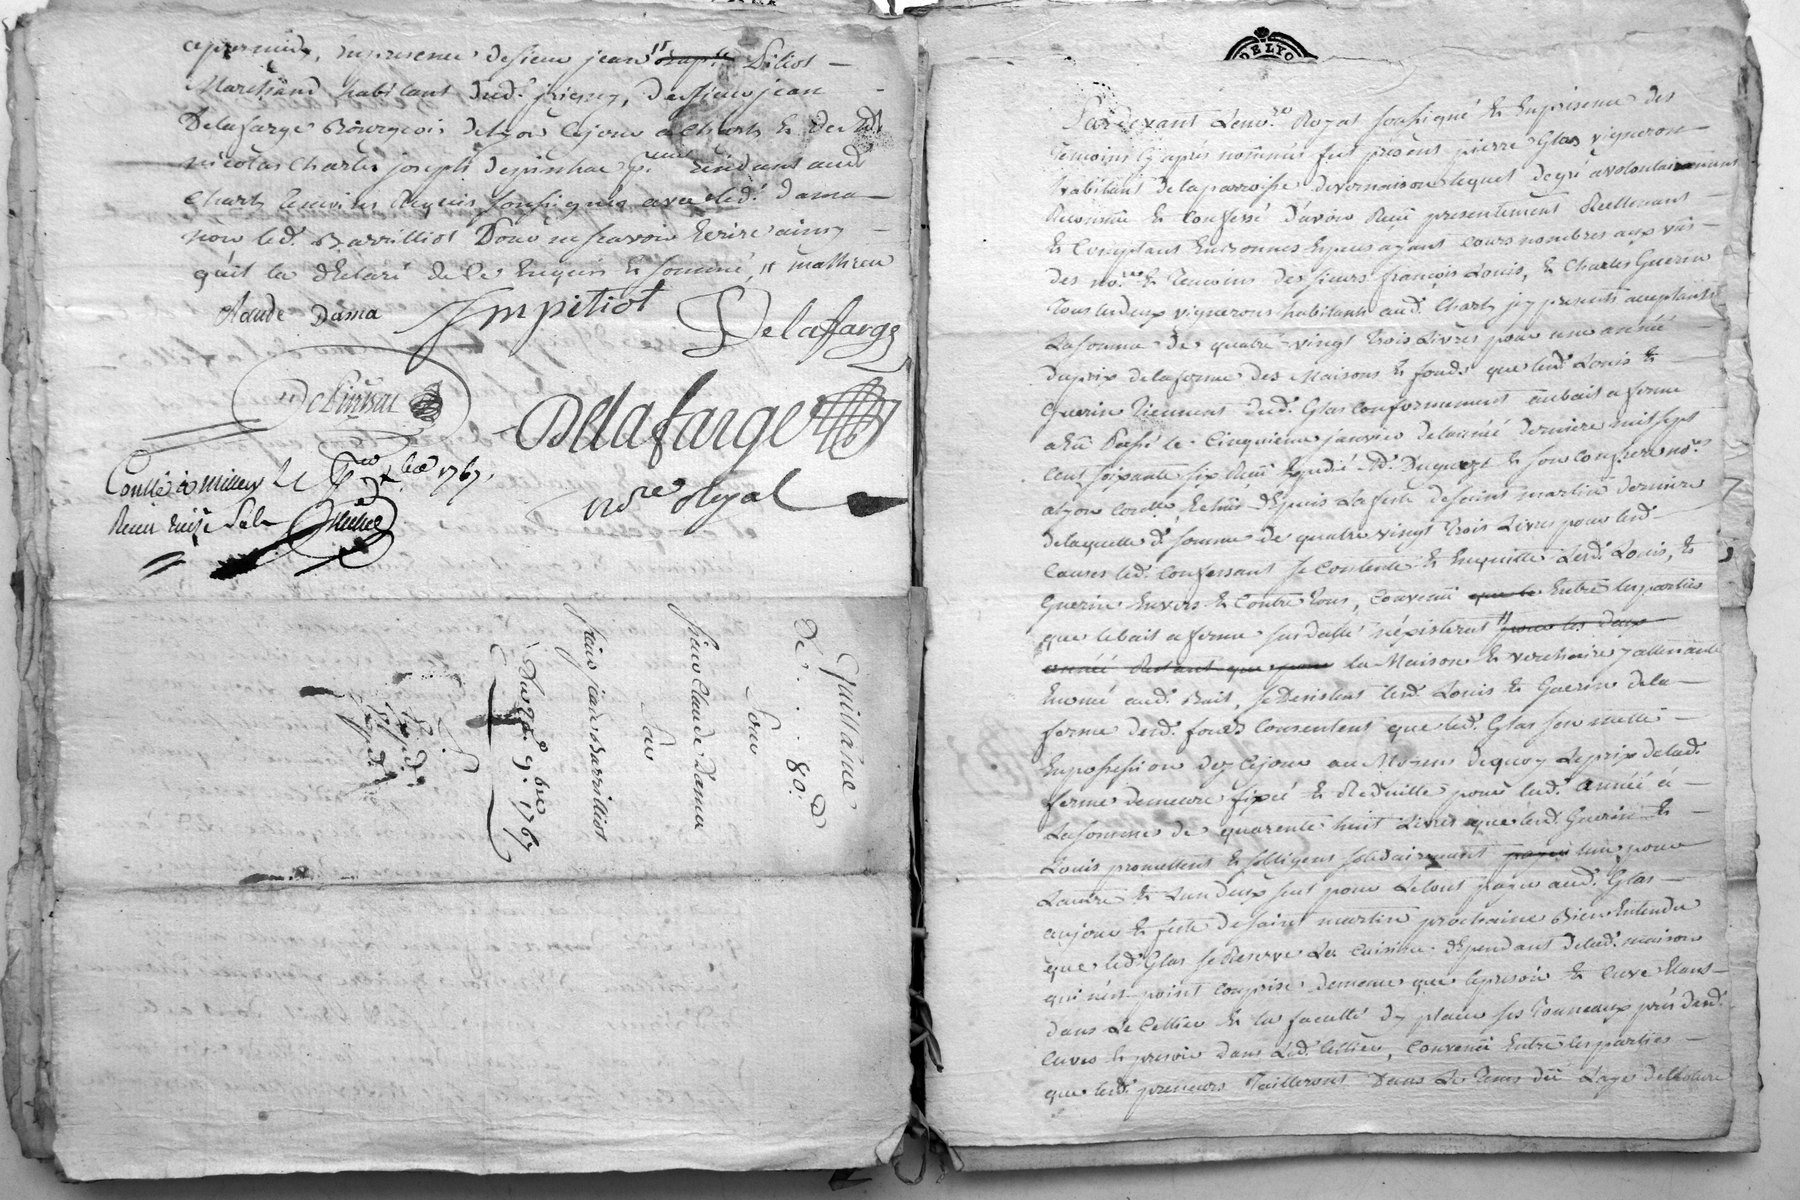 apresmidy, En presence de sieur jean " bapte Pitiot
Marchand habitant dud. Grigny, de sieur jean
Delafarge Bourgeois de Lyon Ce jour a Charly & de
nicolas Charles joseph depinhac residant aud
Charly temoins Requis soussignés avec led. Dama
non led. Barrilliot Pour ne scavoir Ecrire ainsy
qu'il la declaré de ce Enquis & sommé, " mathieu
Claude Dama JmPitiot Delafarge
Depinhac Delafarge
nore Royal
Conllé a millery le 1767
Reçu
Quittance
De . . . 80
Pour
sieur Claude Dama
Par
sieur jean Barrilliot
Du 22e 9bre 1767
DELYO
Pardevant Le no.re Royal soussigné & En presence des
Temoins Cy après nommés fut présent pierre Glas vigneron
habitant de la parroisse de vernaison lequel de gré a volontairement
Reconnu & Confessé d'avoir Reçu presentement Reellement
& Comptant En bonnes Especes ayant Cours nombrés aux vûs
des no.res & Temoins des sieurs françois Louis, & Charles Guerin
Tous les deux vignerons habitants aud. Charly jcy presents acceptants
La somme de quatre vingt Trois Livres pour une année
du prix de la ferme des Maisons & fonds que lesd. Louis &
Guerin Tiennent dud. Glas Conformement au bail a ferme
a Eux Passé le Cinquieme janvier de l'année derniere mil sept
Cent soixante six Reçu & Expedié Me Dugueyt & son Confrere no.res
a Lyon Controllé Echue depuis La feste de saint martin derniere
de laquelle d. somme de quatre vingt Trois Livres pour lesd.
Causes led. Confessant se Contente & En quitte Lesd. Louis, &
Guerin Envers & Contre Tous, Convenu que le Entre les parties
que le bail a ferme susdatté n'existerat " pour les deux
année Restant que pour la Maison & verchaire y attenante
Enoncé aud. Bail, se Desistent lesd. Louis & Guerin de la
ferme desd. fonds Consentent que led. Glas s'en mette
En possession dez Ce jour au Moyen de quoy Le prix de lad.
ferme demeure fixée & Reduitte pour lad. année a
La somme de quarente huit Livres que lesd. Guerin &
Louis promettent & s'obligent solidairement payer l'un pour
L'autre & L'un d'eux seul pour Le tout payer aud. Glas
au jour & feste de saint martin prochaine Bien Entendu
que led. Glas se Reserve La Cuisine dépendant de lad. maison
qui n'est point Comprise de meme que le presoir & Cuve Etans
dans Le Cellier & la faculté d'y placer ses Tonneaux près desd.
Cuves & presoir dans Led. Cellier, Convenu Entre les parties
que lesd. preneurs Tailleront Dans Le Tems dû